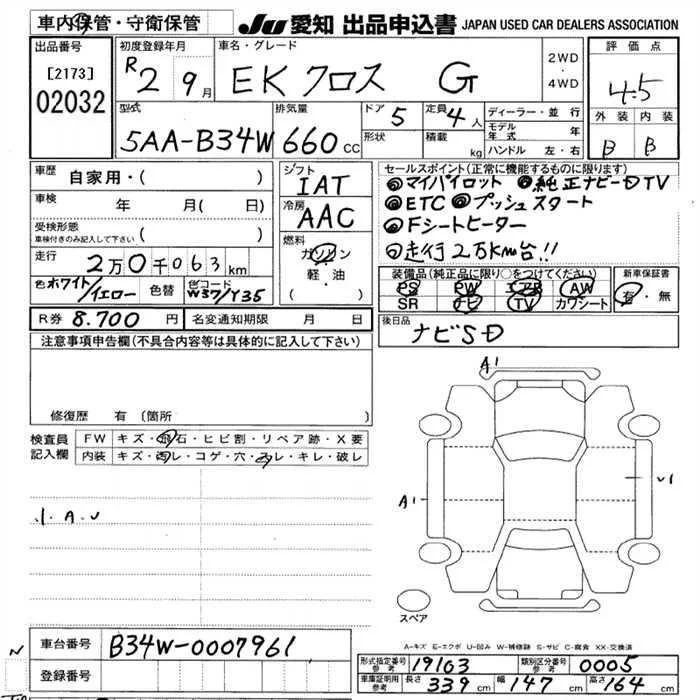 車内保管・守衛保管 JU 愛知 出品申込書 JAPAN USED CAR DEALERS ASSOCIATION
出品番号 初度登録年月 車名・グレード 2WD・4WD 評価点
[2173] R2 9月 EKクロス G 4.5
02032
型式 排気量 ドア 5 定員 4人 ディーラー・並行 外装 内装
5AA-B34W 660cc 形状 積載 kg モデル年式 年 B B
ハンドル 左・右
車歴 自家用・( ) シフト IAT セールスポイント(正常に機能するものに限ります)
◎マイパイロット ◎純正ナビ-D TV
車検 年 月( 日) 冷房 AAC ◎ETC ◎プッシュスタート
受検形態 車検付きのみ記入して下さい ( ) ◎Fシートヒーター
走行 2万0千063km 燃料 ガソリン 軽・油 ◎走行2万Km台!!
色 ホワイト/イエロー 色替 色コード W37/Y35 ( )
装備品(純正品に限り○をつけてください) 新車保証書
PS PW エアB AW 有・無
SR ナビ TV カワシート
R券 8.700円 名変通知期限 月 日 後日品
ナビSD
注意事項申告欄(不具合内容等は具体的に記入して下さい)
修復歴 有 (箇所
検査員記入欄 FW キズ・飛石・ヒビ割・リペア跡・X要
内装 キズ・ヨレ・コゲ・穴・スレ・キレ・破レ
A1
A1
U1
小.A.U
スペア
車台番号 B34W-0007961
登録番号
A-キズ E-エクボ U-凹み W-補修跡 S-サビ C-腐食 XX-交換済
形式指定番号 参考 19103 類別区分番号 参考 0005
車庫証明用 参考 長さ 339cm 幅 147cm 高さ 164cm